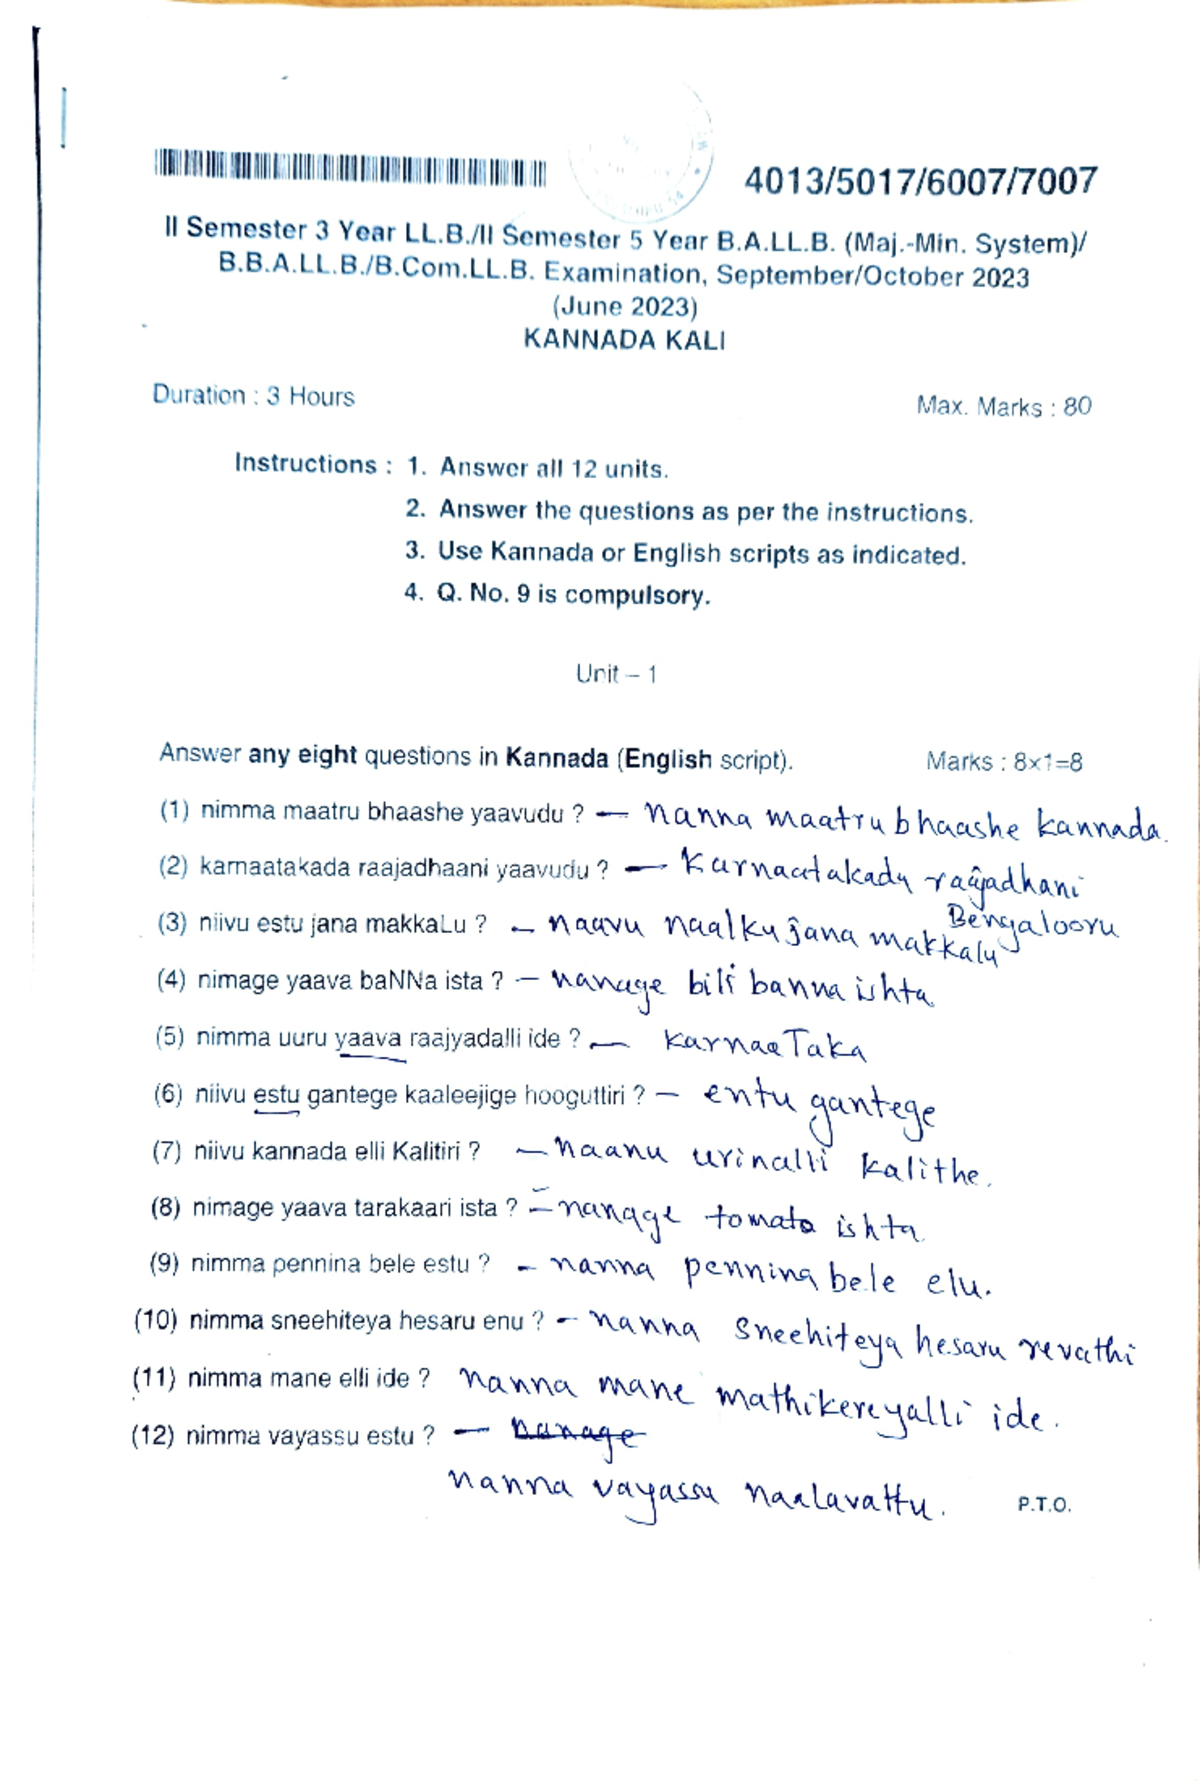 4013/5017/6007/7007
II Semester 3 Year LL.B./II Semester 5 Year B.A.LL.B. (Maj.-Min. System)/
B.B.A.LL.B./B.Com.LL.B. Examination, September/October 2023
(June 2023)
KANNADA KALI
Duration : 3 Hours Max. Marks : 80
Instructions : 1. Answer all 12 units.
2. Answer the questions as per the instructions.
3. Use Kannada or English scripts as indicated.
4. Q. No. 9 is compulsory.
Unit – 1
Answer any eight questions in Kannada (English script). Marks : 8×1=8
(1) nimma maatru bhaashe yaavudu ? — nanna maatru bhaashe kannada.
(2) karnaatakada raajadhaani yaavudu ? — Karnaatakada raajadhani
Bengalooru
(3) niivu estu jana makkaLu ? – naavu naalku jana makkalu
(4) nimage yaava baNNa ista ? – nanage bili banna ishta
(5) nimma uuru yaava raajyadalli ide ? — karnaaTaka
(6) niivu estu gantege kaaleejige hooguttiri ? – entu gantege
(7) niivu kannada elli Kalitiri ? – naanu urinalli kalithe.
(8) nimage yaava tarakaari ista ? – nanage tomato ishta
(9) nimma pennina bele estu ? – nanna pennina bele elu.
(10) nimma sneehiteya hesaru enu ? – nanna sneehiteya hesaru revathi
(11) nimma mane elli ide ? nanna mane mathikereyalli ide.
(12) nimma vayassu estu ? — nanage
nanna vayassu naalavattu.
P.T.O.